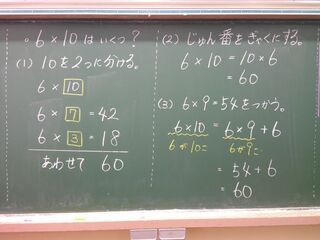 ○ 6×10はいくつ?
(1) 10を2つに分ける。
6×10
6×7=42
6×3=18
あわせて 60
(2) じゅん番をぎゃくにする。
6×10=10×6
=60
(3) 6×9=54をつかう。
6×10=6×9+6
6が10こ 6が9こ
=54+6
=60